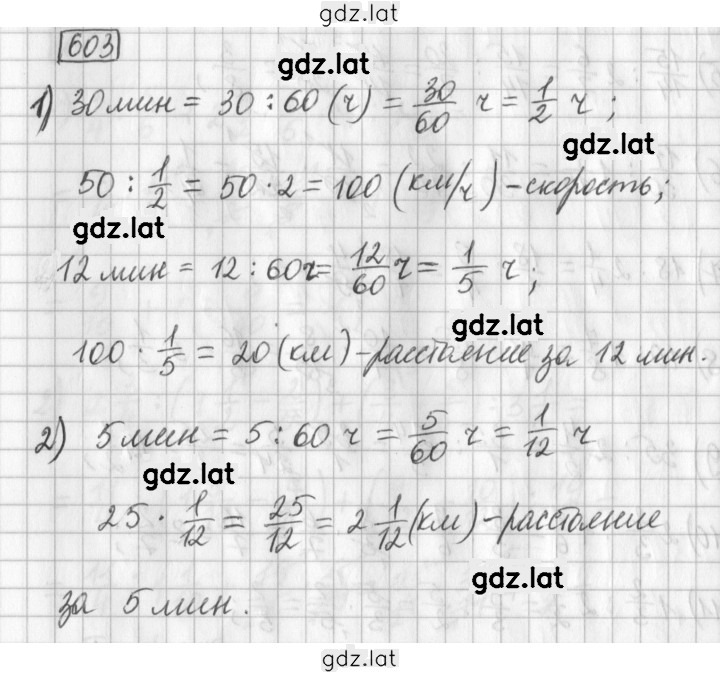 gdz.lat
603
gdz.lat
1) 30 мин = 30 : 60 (ч) = 30/60 ч = 1/2 ч ;
gdz.lat
50 : 1/2 = 50 · 2 = 100 (км/ч) - скорость;
gdz.lat
12 мин = 12 : 60ч = 12/60 ч = 1/5 ч ;
gdz.lat
100 · 1/5 = 20 (км) - расстояние за 12 мин.
2) 5 мин = 5 : 60 ч = 5/60 ч = 1/12 ч
gdz.lat
25 · 1/12 = 25/12 = 2 1/12 (км) - расстояние
gdz.lat
за 5 мин.
gdz.lat